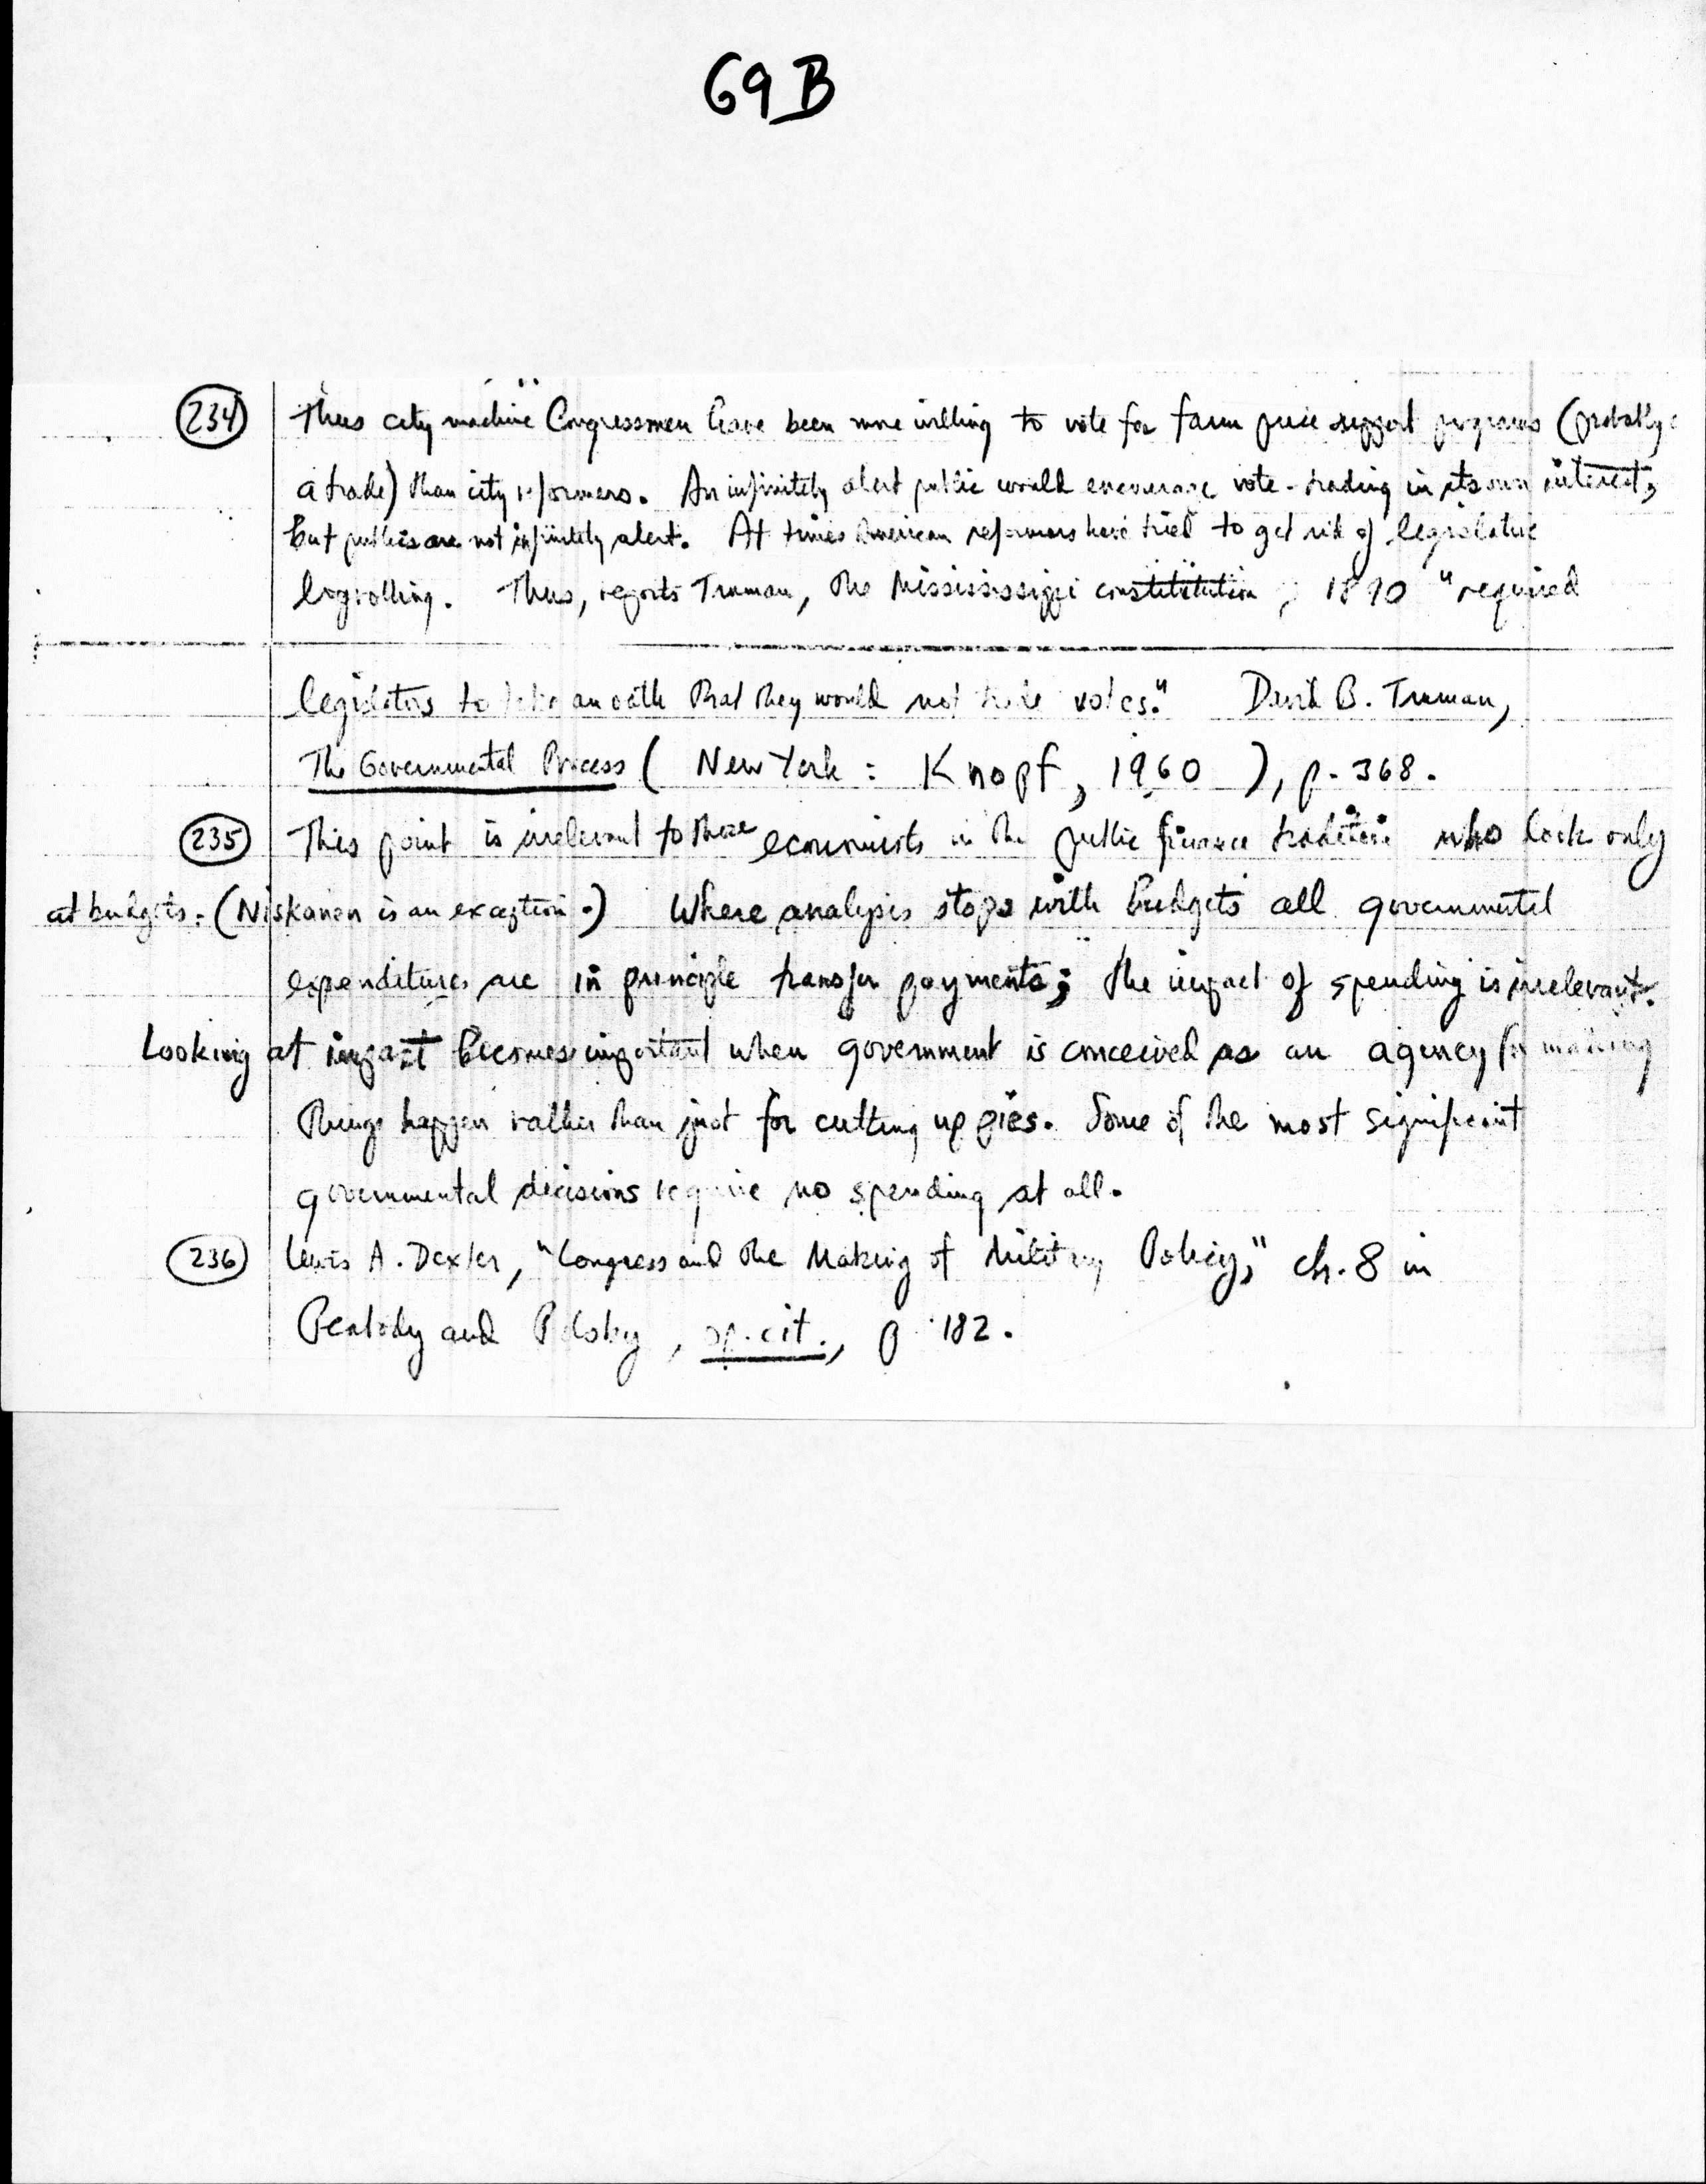 69B
234 Thus city machine Congressmen have been more willing to vote for farm price support programs (probably
a trade) than city reformers. An infinitely alert public would encourage vote-trading in its own interest,
but publics are not infinitely alert. At times American reformers have tried to get rid of legislative
logrolling. Thus, reports Truman, the Mississississippi constititution, 1890 "required
legislators to take an oath that they would not trade votes." David B. Truman,
The Governmental Process (New York: Knopf, 1960), p. 368.
235 This point is irrelevant to those economists in the public finance tradition who look only
at budgets. (Niskanen is an exception.) Where analysis stops with budgets all governmental
expenditures are in principle transfer payments; the impact of spending is irrelevant.
Looking at impact becomes important when government is conceived as an agency for making
things happen rather than just for cutting up pies. Some of the most significant
governmental decisions require no spending at all.
236 Lewis A. Dexter, "Congress and the Making of Military Policy," ch. 8 in
Peabody and Polsby, op. cit., p 182.